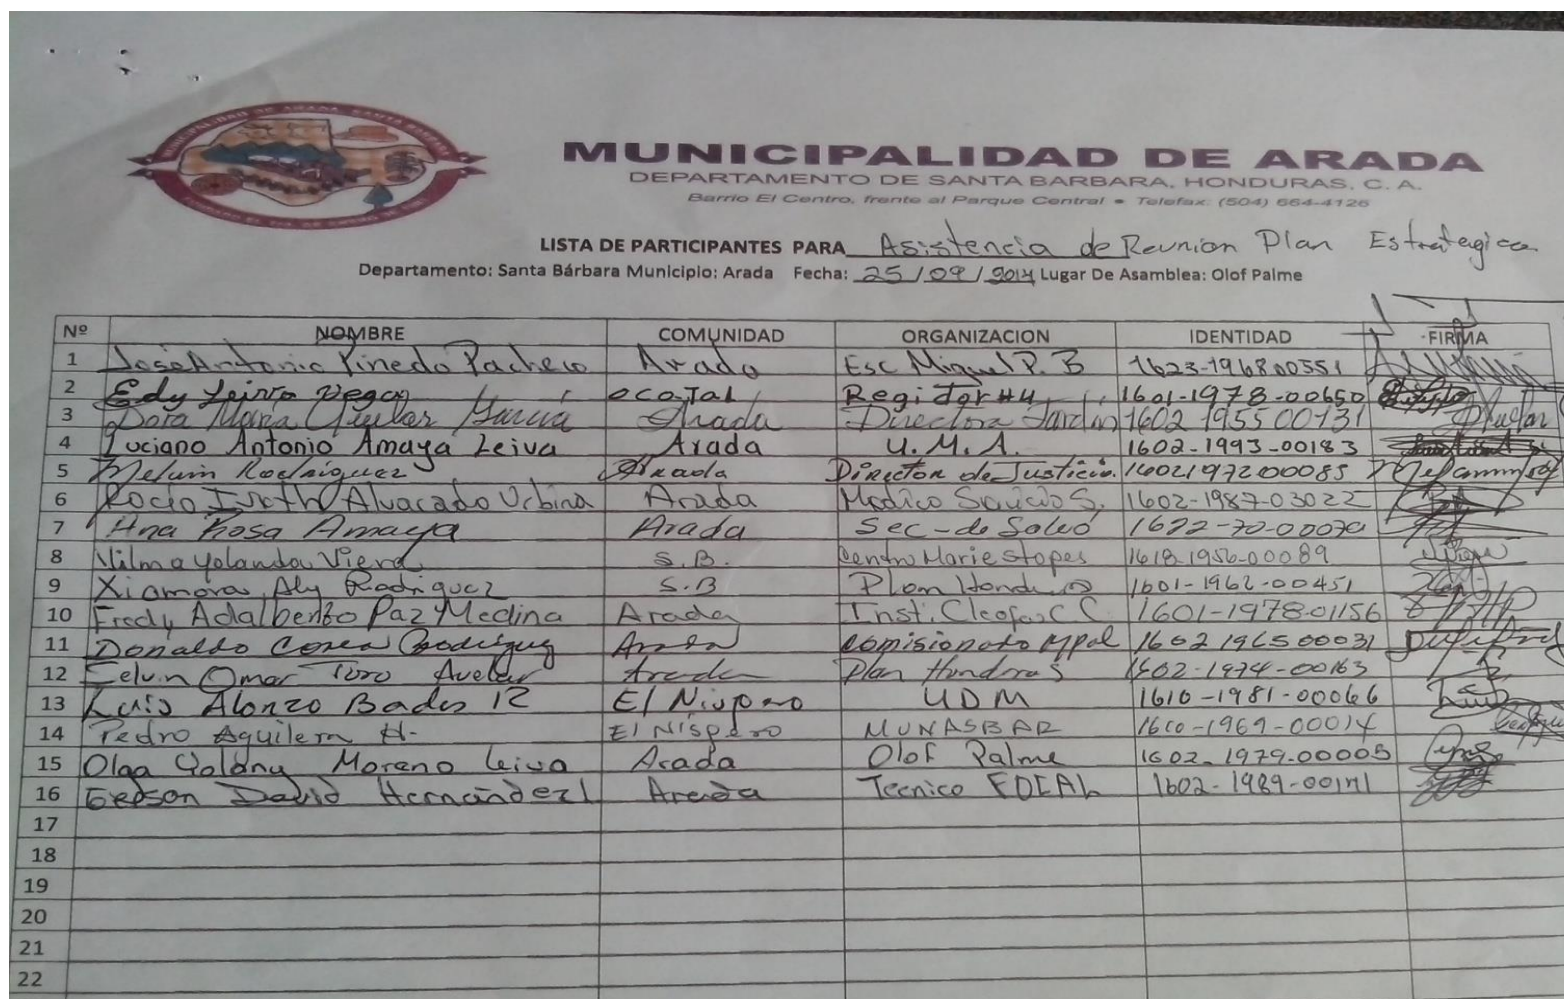 MUNICIPALIDAD DE ARADA
DEPARTAMENTO DE SANTA BARBARA, HONDURAS, C. A.
Barrio El Centro, frente al Parque Central • Telefax: (504) 664-4126
LISTA DE PARTICIPANTES PARA Asistencia de Reunion Plan Estrategico
Departamento: Santa Bárbara Municipio: Arada Fecha: 25/09/2014 Lugar De Asamblea: Olof Palme
Nº NOMBRE COMUNIDAD ORGANIZACION IDENTIDAD FIRMA
1 José Antonio Pinedo Pacheco Arada Esc Miguel P. B 1623-196800551
2 Edy Leiva Vegas ocotal Regidor #4 1601-1978-00650
3 Dora Maria Aguilar Garcia Arada Directora Jardin 1602 1955 00131
4 Luciano Antonio Amaya Leiva Arada U.M.A. 1602-1993-00183
5 Melvin Rodriguez Arada Director de Justicia. 1602197200085
6 Rocio Iveth Alvarado Urbina Arada Medico Servicio S. 1602-1987-03022
7 Ana Rosa Amaya Arada Sec-de Salud 1622-70-00070
8 Vilma Yolanda Viera S.B. Centro Marie Stopes 1618-1956-00089
9 Xiomora Aly Rodriguez S.B Plan Honduras 1601-1962-00451
10 Fredy Adalberto Paz Medina Arada Inst. Cleofas C C. 1601-1978-01156
11 Donaldo Rodriguez Arada Comisionato Mpal 1602 1965 00031
12 Selvin Omar Toro Avelar Arada Plan Honduras 1602-1974-00163
13 Luis Alonzo Bados R El Nispero UDM 1610-1981-00066
14 Pedro Aguilera H- El Níspero MUNASBAR 1610-1969-00014
15 Olga Yolany Moreno Leiva Arada Olof Palme 1602-1979-00005
16 Gerson David Hernández L Arada Tecnico FDEAL 1602-1989-00171
17
18
19
20
21
22